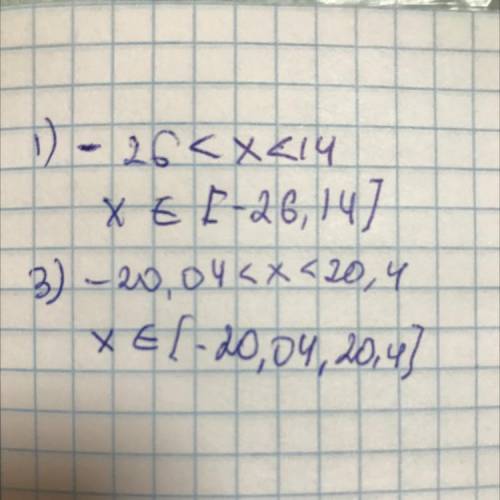 1) - 26 < x < 14
x ∈ [-26, 14]
3) - 20,04 < x < 20,4
x ∈ [-20,04, 20,4]